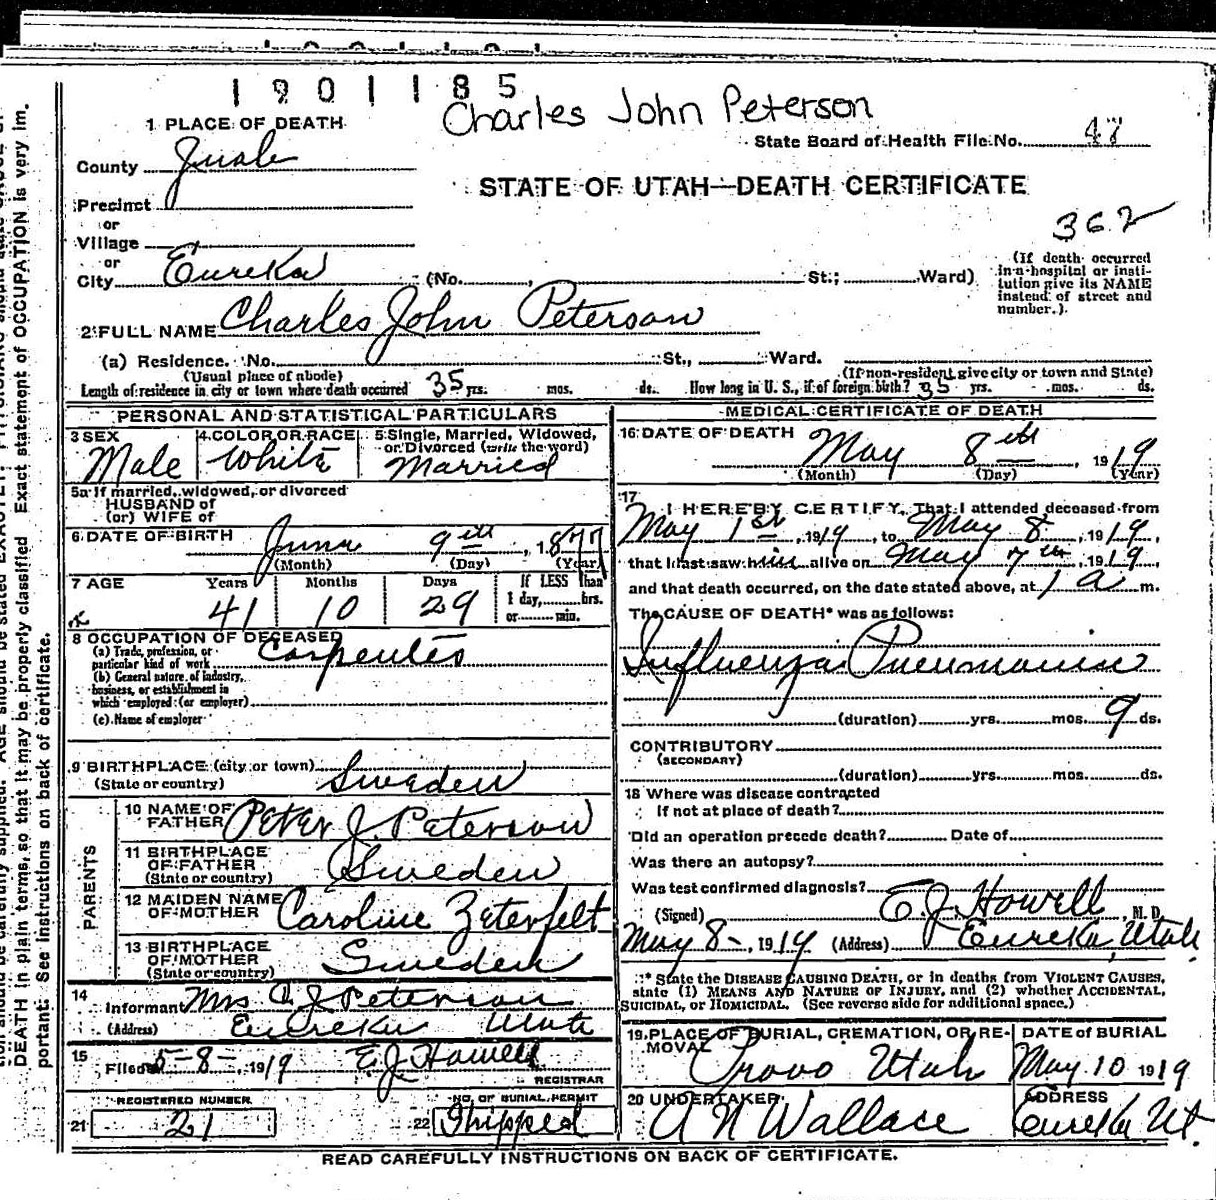 1901185
Charles John Peterson
1 PLACE OF DEATH
State Board of Health File No. 47
County Juab
STATE OF UTAH—DEATH CERTIFICATE
Precinct
or
Village
362
or
City Eureka (No. , St.; Ward)
(If death occurred in a hospital or institution give its NAME instead of street and number.)
2 FULL NAME Charles John Peterson
(a) Residence. No. St., Ward.
(Usual place of abode) (If non-resident give city or town and State)
Length of residence in city or town where death occurred 35 yrs. mos. ds. How long in U. S., if of foreign birth? 35 yrs. mos. ds.
PERSONAL AND STATISTICAL PARTICULARS
3 SEX Male
4 COLOR OR RACE White
5 Single, Married, Widowed, or Divorced (write the word) Married
5a If married, widowed, or divorced
HUSBAND of
(or) WIFE of
6 DATE OF BIRTH June 9th, 1877
(Month) (Day) (Year)
7 AGE Years Months Days If LESS than
41 10 29 1 day, hrs.
or min.
8 OCCUPATION OF DECEASED
(a) Trade, profession, or particular kind of work Carpenter
(b) General nature of industry, business, or establishment in which employed (or employer)
(c) Name of employer
9 BIRTHPLACE (city or town)
(State or country) Sweden
PARENTS
10 NAME OF FATHER Peter J. Peterson
11 BIRTHPLACE OF FATHER (State or country) Sweden
12 MAIDEN NAME OF MOTHER Caroline Zeterfelt
13 BIRTHPLACE OF MOTHER (State or country) Sweden
14 Informant Mrs C J Peterson
(Address) Eureka Utah
15 Filed 5-8-, 1919 E.J. Howell
REGISTRAR
REGISTERED NUMBER
21 21
NO. OF BURIAL PERMIT
22 Shipped
MEDICAL CERTIFICATE OF DEATH
16 DATE OF DEATH
May 8th, 1919
(Month) (Day) (Year)
17 I HEREBY CERTIFY, That I attended deceased from
May 1st, 1919, to May 8, 1919,
that I last saw him alive on May 7th, 1919,
and that death occurred, on the date stated above, at 1 a m.
The CAUSE OF DEATH* was as follows:
Influenza Pneumonia
(duration) yrs. mos. 9 ds.
CONTRIBUTORY
(SECONDARY)
(duration) yrs. mos. ds.
18 Where was disease contracted
If not at place of death?
Did an operation precede death? Date of
Was there an autopsy?
Was test confirmed diagnosis?
(Signed) E.J. Howell, M. D.
May 8-, 1919 (Address) Eureka, Utah
* State the DISEASE CAUSING DEATH, or in deaths from VIOLENT CAUSES,
state (1) MEANS AND NATURE OF INJURY, and (2) whether ACCIDENTAL,
SUICIDAL, or HOMICIDAL. (See reverse side for additional space.)
19 PLACE OF BURIAL, CREMATION, OR REMOVAL Provo Utah
DATE OF BURIAL May 10 1919
20 UNDERTAKER A N Wallace
ADDRESS Eureka Ut.
READ CAREFULLY INSTRUCTIONS ON BACK OF CERTIFICATE.
DEATH in plain terms, so that it may be properly classified. Exact statement of OCCUPATION is very im-
portant. See instructions on back of certificate.